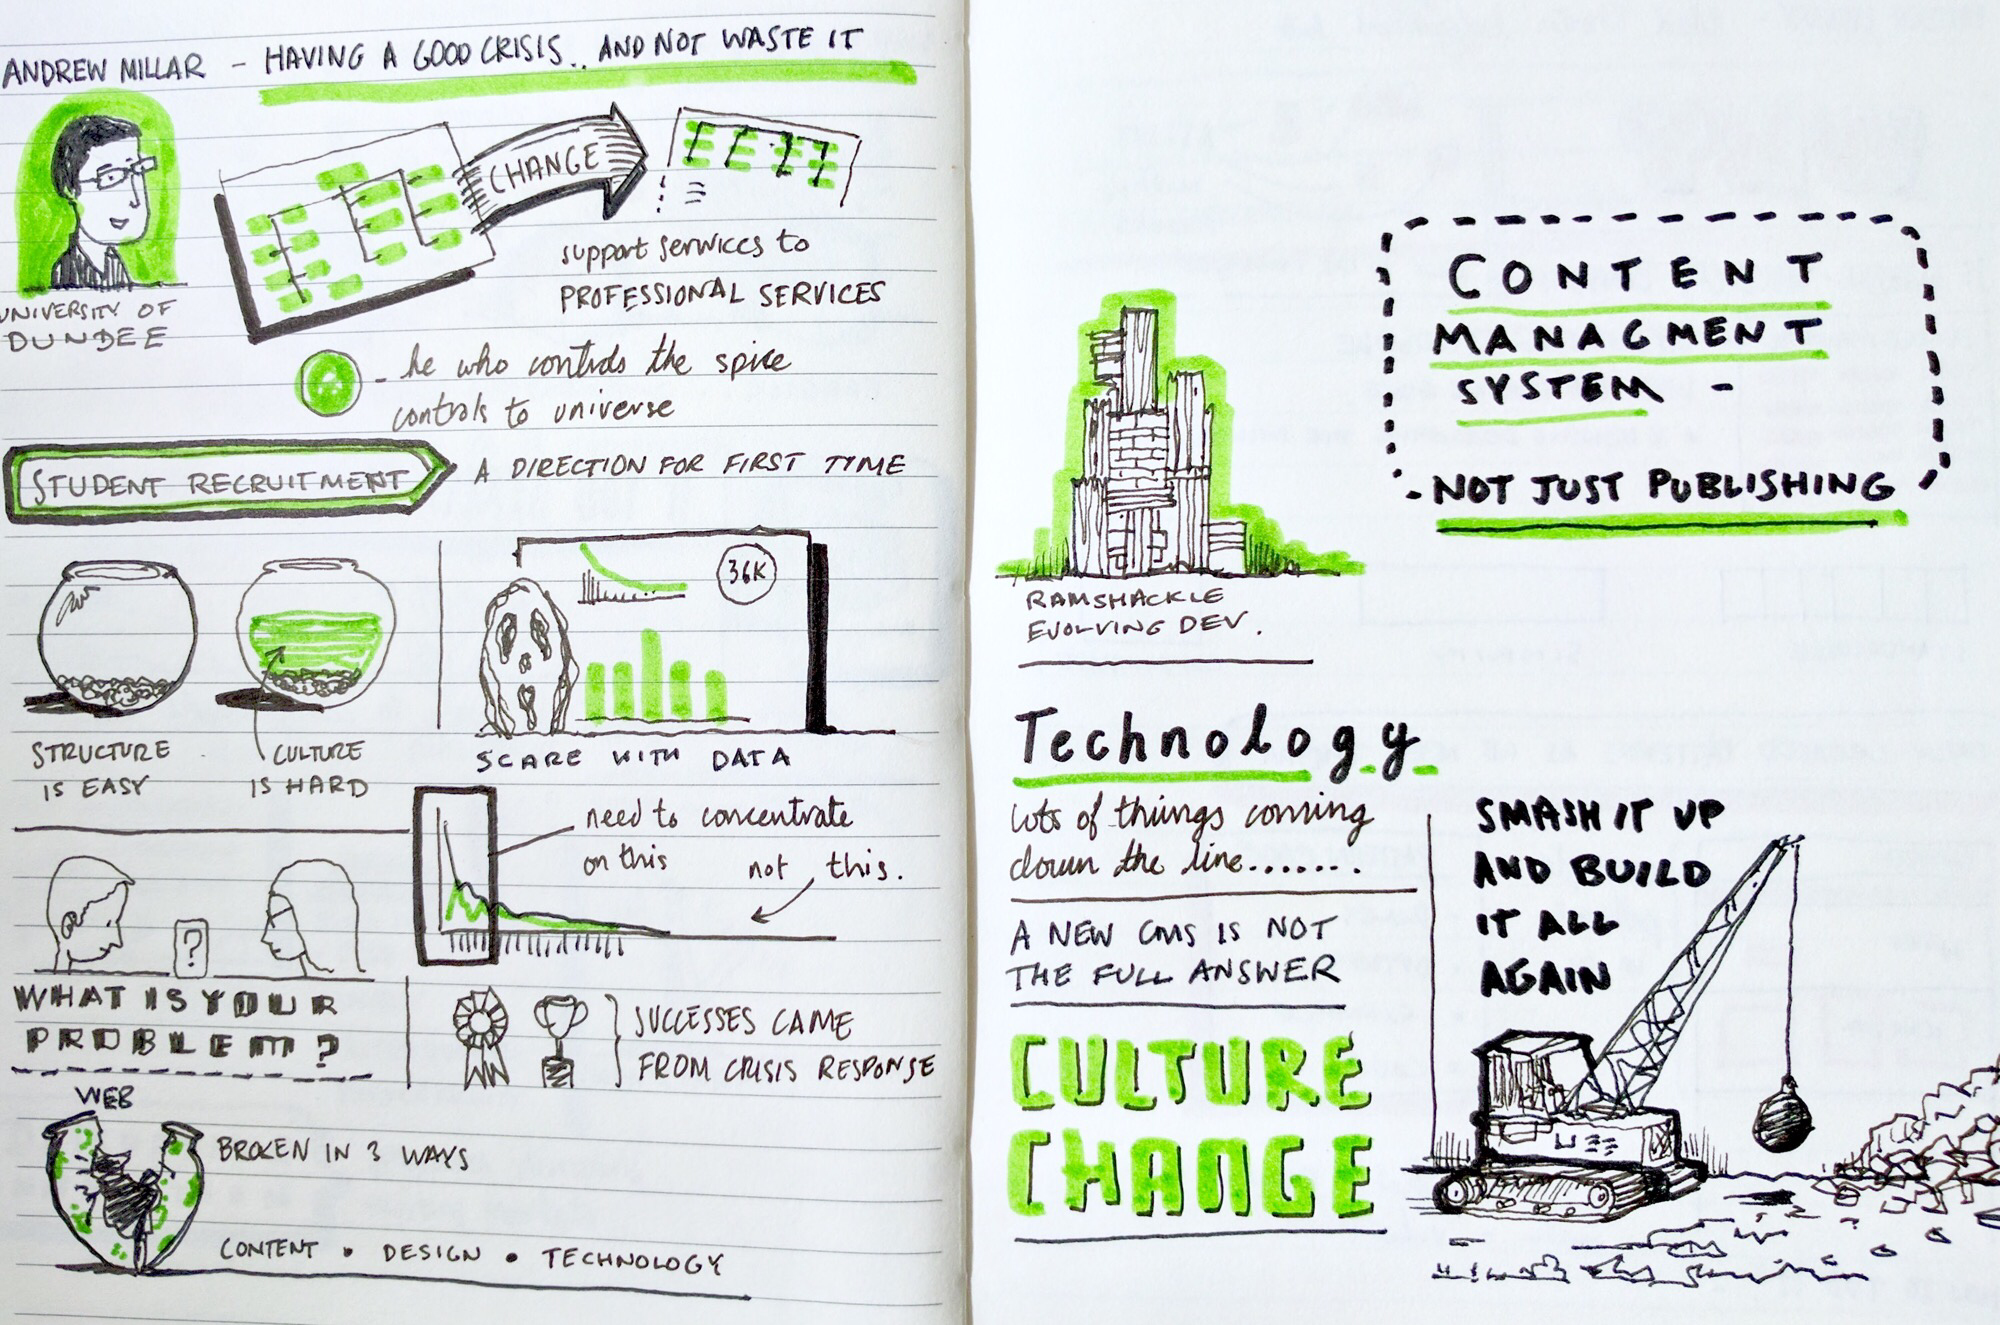 ANDREW MILLAR - HAVING A GOOD CRISIS.. AND NOT WASTE IT
UNIVERSITY OF
DUNDEE
CHANGE
support services to
PROFESSIONAL SERVICES
- he who controls the spice
controls to universe
STUDENT RECRUITMENT
A DIRECTION FOR FIRST TIME
STRUCTURE
IS EASY
CULTURE
IS HARD
36K
SCARE WITH DATA
need to concentrate
on this
not this.
?
WHAT IS YOUR
PROBLEM?
SUCCESSES CAME
FROM CRISIS RESPONSE
WEB
BROKEN IN 3 WAYS
CONTENT • DESIGN • TECHNOLOGY
CONTENT
MANAGMENT
SYSTEM -
- NOT JUST PUBLISHING
RAMSHACKLE
EVOLVING DEV.
Technology
lots of things coming
down the line.......
A NEW CMS IS NOT
THE FULL ANSWER
CULTURE
CHANGE
SMASH IT UP
AND BUILD
IT ALL
AGAIN